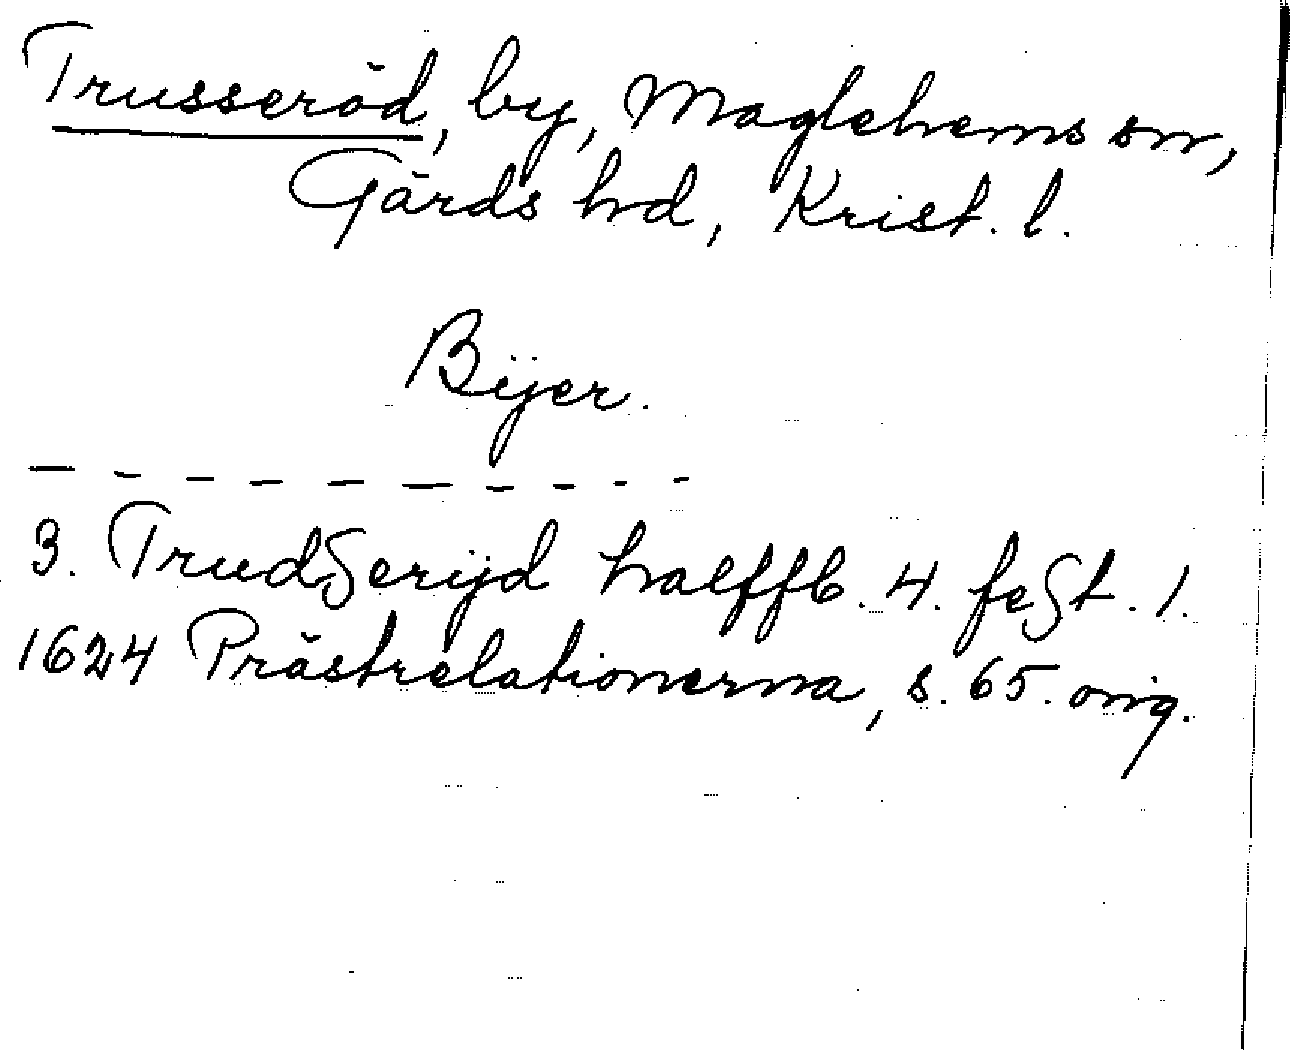 Trusseröd, by, Maglehems sn,
Gärds hd, Krist. l.
Bÿer.
— — — — — — — — — —
3. Trudßerÿd halffb. 4. feßt. 1.
1624 Prästrelationerna, s. 65. orig.